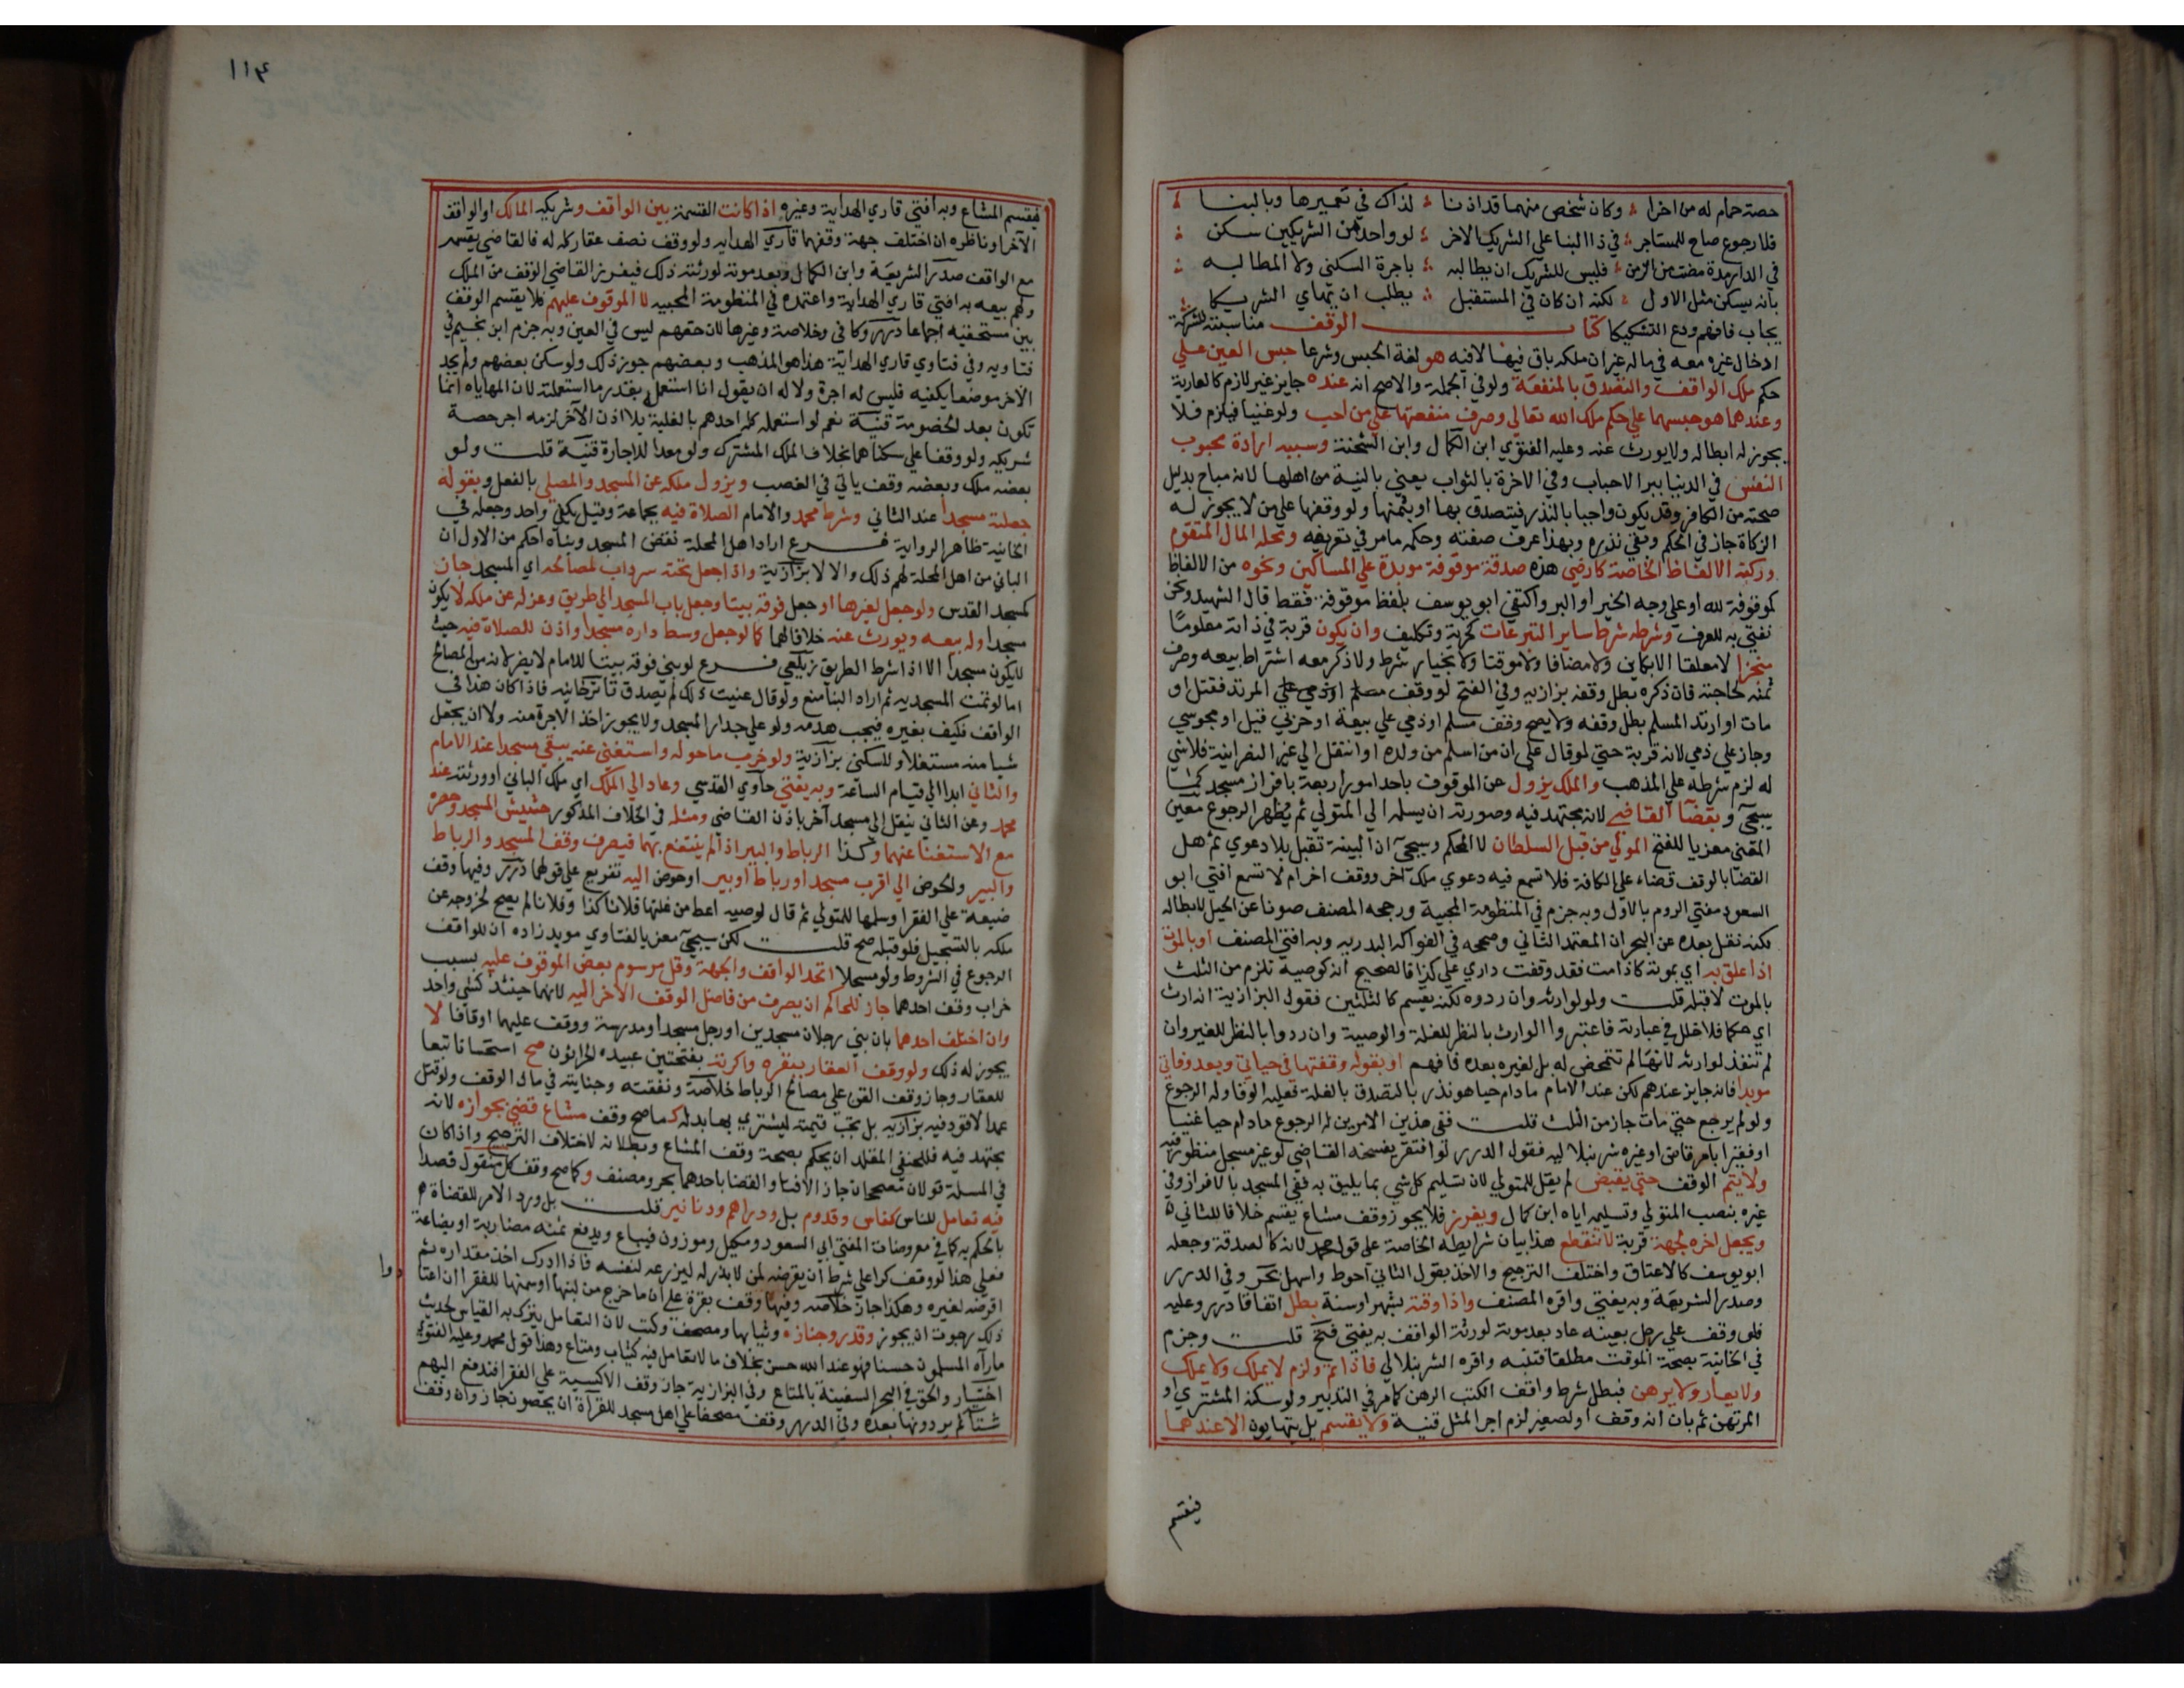 حصة حمام له من اخرا ؛ وكان شخص منهما قد اذنا ؛ لذاك في تعميرها وبالبنا ؛
فلا رجوع صاح للمستاجر ؛ في ذا البنا علي الشريك الاخر ؛ لو واحد من الشريكين سكن ؛
في الدار مدة مضت من الزمن ؛ فليس للشريك ان يطالبه ؛ باجرة السكني ولا المطالبه ؛
بانه يسكن مثل الاول ؛ لكنه ان كان في المستقبل ؛ يطلب ان تهاي الشريكا ؛
يجاب فافهم ودع التشكيكا كتاب الوقف مناسبته للشركة
ادخال غيره معه في ماله غير ان ملكه باق فيها لا فيه هو لغة الحبس وشرعا حبس العين علي
حكم ملك الواقف والتصدق بالمنفعة ولو في الجملة والاصح انه عنده جايز غير لازم كالعارية
وعندهما هو حبسها علي حكم ملك الله تعالي وصرف منفعتها علي من احب ولو غنيا فيلزم فلا
يجوز له ابطاله ولا يورث عنه وعليه الفتوي ابن الكمال وابن الشحنة وسببه ارادة محبوب
النفس في الدنيا ببر الاحباب وفي الاخرة بالثواب يعني بالنية من اهلها لانه مباح بدليل
صحته من الكافر وقد يكون واجبا بالنذر فيتصدق بها او بثمنها ولو وقفها علي من لا يجوز له
الزكاة جاز في الحكم وبقي نذره وبهذا عرف صفته وحكمه مامر في تعريفه ومحله المال المتقوم
وركنه الالفاظ الخاصة كارضي هذه صدقة موقوفة موبدة علي المساكين ونحوه من الالفاظ
كموقوفة لله او علي وجه الخير او البر واكتفي ابو يوسف بلفظ موقوفة فقط قال الشهيد ونحن
نفتي به للعرف وشرطه شرط ساير التبرعات كحرية وتكليف وان يكون قربة في ذاته معلوما
منجزا لا معلقا الا بكاين ولا مضافا ولا موقتا ولا بخيار شرط ولا ذكر معه اشتراط بيعه وصرف
ثمنه لحاجته فان ذكره بطل وقفه بزازيه وفي الفتح لو وقف المرتد فقتل او
مات او ارتد المسلم بطل وقفه ولا يصح وقف مسلم او ذمي علي بيعة او حربي قيل او مجوسي
وجاز علي ذمي لانه قربة حتي لو قال علي ان من اسلم من ولده او انتقل الي غير النصرانية فلا شي
له لزم شرطه علي المذهب والملك يزول عن الموقوف باحد امور اربعة بافراز مسجد كما
سيجي وبقضا القاضي لانه مجتهد فيه وصورته ان يسلمه الي المتولي ثم يظهر الرجوع معين
المفتي معزيا للفتح المولي من قبل السلطان لا المحكم وسيجي ان البينة تقبل بلا دعوي ثم هل
القضا بالوقف قضاء علي الكافة فلا تسمع فيه دعوي ملك آخر ووقف اخر ام لا تسمع افتي ابو
السعود مفتي الروم بالاول وبه جزم في المنظومة المحبية ورجحه المصنف صونا عن الحيل لابطاله
لكنه نقل بعده عن البحر ان المعتمد الثاني وصححه في الفواكه البدريه وبه افتي المصنف او بالموت
اذا علق به اي بموته كاذا مت فقد وقفت داري علي كذا فالصحيح انه كوصية تلزم من الثلث
بالموت لا قبله قلت ولو لوارثه وان ردوه لكنه يقسم كالثلثين فقول البزازية انه ارث
اي حكما فلا خلل في عبارته فاعتبروا الوارث بالنظر للغلة والوصية وان ردوا بالنظر للغير وان
لم تنفذ لوارثه لانها لم تتمحض له بل لغيره بعده فافهم او بقوله وقفتها في حياتي وبعد وفاتي
موبدا فانه جايز عندهم لكن عند الامام مادام حيا هو نذر بالتصدق بالغلة فعليه الوفا وله الرجوع
ولو لم يرجع حتي مات جاز من الثلث قلت ففي هذين الامرين له الرجوع مادام حيا غنيا
او فقيرا بامر قاض او غيره شرنبلاليه فقول الدرر لو افتقر يفسخه القاضي لو غير مسجل منظور فيه
ولا يتم الوقف حتي يقبض لم يقل للمتولي لان تسليم كل شي بما يليق به ففي المسجد بالافراز وفي
غيره بنصب المتولي وتسليمه اياه ابن كمال ويفرز فلا يجوز وقف مشاع يقسم خلافا للثاني
ويجعل اخره لجهة قربة لا تنقطع هذا بيان شرايطه الخاصة علي قول محمد لانه كالصدقة وجعله
ابو يوسف كالاعتاق واختلف الترجيح والاخذ بقول الثاني احوط واسهل بحر وفي الدرر
وصدر الشريعة وبه يفتي واقره المصنف واذا وقته بشهر او سنة بطل اتفاقا درر وعليه
فلو وقف علي رجل بعينه عاد بعد موته لورثة الواقف به يفتي فتح قلت وجزم
في الخانية بصحة الموقت مطلقا فتنبه واقره الشرنبلالي فاذا تم ولزم لا يملك ولا يملك
ولا يعار ولا يرهن فبطل شرط واقف الكتب الرهن كامر في التدبير ولو سكنه المشتري او
المرتهن ثم بان انه وقف او لصغير لزم اجر المثل قنية ولا يقسم بل يتهايون الا عندهما
فيقسم
١١٤
فيقسم المشاع وبه افتي قاري الهداية وغيره اذا كانت القسمة بين الواقف وشريكه المالك او الواقف
الآخر او ناظره ان اختلف جهة وقفهما قاري الهدايه ولو وقف نصف عقار كله له فالقاضي يقسمه
مع الواقف صدر الشريعة وابن الكمال وبعد موته لورثته ذلك فيفرز القاضي الوقف من الملك
ولهم بيعه به افتي قاري الهداية واعتمده في المنظومة المحبيه لا الموقوف عليهم فلا يقسم الوقف
بين مستحقيه اجماعا درر وكافي وخلاصة وغيرها لان حقهم ليس في العين وبه جزم ابن نجيم في
فتاويه وفي فتاوي قاري الهداية هذا هو المذهب وبعضهم جوز ذلك ولو سكن بعضهم ولم يجد
الآخر موضعا يكفيه فليس له اجرة ولا له ان يقول انا استعمل بقدر ما استعملته لان المهاياه انما
تكون بعد الخصومة قنية نعم لو استعمله كله احدهم بالغلبة بلا اذن الآخر لزمه اجر حصة
شريكه ولو وقفا علي سكناهما بخلاف الملك المشترك ولو معدا للاجارة قنية قلت ولو
بعضه ملك وبعضه وقف ياتي في الغصب ويزول ملكه عن المسجد والمصلي بالفعل وبقوله
جعلته مسجدا عند الثاني وشرط محمد والامام الصلاة فيه بجماعة وقيل يكفي واحد وجعله في
الخانية ظاهر الرواية فرع اراد اهل المحلة نقض المسجد وبناه احكم من الاول ان
الباني من اهل المحلة لهم ذلك والا لا بزازية واذا جعل تحته سرداب لمصالحه اي المسجد جاز
كمسجد القدس ولو جعل لغيرها او جعل فوقه بيتا وجعل باب المسجد الي طريق وعزله عن ملكه لا يكون
مسجدا وله بيعه ويورث عنه خلافا لهما كما لو جعل وسط داره مسجدا واذن للصلاة فيه حيث
لا يكون مسجدا الا اذا شرط الطريق زيلعي فرع لو بني فوقه بيتا للامام لا يضر لانه من المصالح
اما لو تمت المسجدية ثم اراد البنا منع ولو قال عنيت ذلك لم يصدق تاترخانيه فاذا كان هذا في
الواقف فكيف بغيره فيجب هدمه ولو علي جدار المسجد ولا يجوز اخذ الاجرة منه ولا ان يجعل
شيا منه مستغلا او للسكني بزازية ولو خرب ما حوله واستغني عنه يبقي مسجدا عند الامام
والثاني ابدا الي قيام الساعة وبه يفتي حاوي القدسي وعاد الي الملك اي ملك الباني او ورثته عند
محمد وعن الثاني ينقل الي مسجد آخر باذن القاضي ومثله في الخلاف المذكور حشيش المسجد وحصره
مع الاستغنا عنهما وكذا الرباط والبير اذا لم ينتفع بهما فيصرف وقف المسجد والرباط
والبير والحوض الي اقرب مسجد او رباط او بير او حوض اليه تفريع علي قولهما درر وفيها وقف
ضيعة علي الفقرا وسلمها للمتولي ثم قال لوصيه اعط من غلتها فلانا كذا وفلانا لم يصح لخروجه عن
ملكه بالتسجيل فلو قبله صح قلت لكن سيجي معزيا لفتاوي مويد زاده ان للواقف
الرجوع في الشروط ولو مسجلا اتحد الواقف والجهة وقل مرسوم بعض الموقوف عليه بسبب
خراب وقف احدهما جاز للحاكم ان يصرف من فاضل الوقف الاخر اليه لانهما حينئذ كشي واحد
وان اختلف احدهما بان بني رجلان مسجدين او رجل مسجدا ومدرسة ووقف عليهما اوقافا لا
يجوز له ذلك ولو وقف العقار ببقره واكرته بفتحتين عبيده الحراثون صح استحسانا تبعا
للعقار وجاز وقف القن علي مصالح الرباط خلاصة ونفقته وجنايته في مال الوقف ولو قتل
عمدا لا قود فيه بزازيه بل تجب قيمته ليشتري بها بدله كما صح وقف مشاع قضي بجوازه لانه
مجتهد فيه فللحنفي المقلد ان يحكم بصحة وقف المشاع وبطلانه لاختلاف الترجيح واذا كان
في المسلة قولان مصححان جاز الافتا والقضا باحدهما بحر ومصنف وكما صح وقف كل منقول قصدا
فيه تعامل للناس كفاس وقدوم بل ودراهم ودنانير قلت بل ورد الامر للقضاة
بالحكم به كما في معروضات المفتي ابي السعود ومكيل وموزون فيباع ويدفع ثمنه مضاربة او بضاعة
فعلي هذا لو وقف كرا علي شرط ان يقرضه لمن لا بذر له ليزرعه لنفسه فاذا ادرك اخذ مقداره ثم
اقرضه لغيره وهكذا جاز خلاصه وفيها وقف بقرة علي ان ما خرج من لبنها او سمنها للفقرا ان اعتا
دوا
ذلك رجوت ان يجوز وقدر وجنازه وثيابها ومصحف وكتب لان التعامل يترك به القياس لحديث
ما رآه المسلمون حسنا فهو عند الله حسن بخلاف ما لا تعامل فيه كثياب ومتاع وهذا قول محمد وعليه الفتوي
اختيار والحق في البحر السفينة بالمتاع وفي البزازية جاز وقف الاكسية علي الفقرا فتدفع اليهم
شتا ثم يردونها بعده وفي الدرر وقف مصحفا علي اهل مسجد للقرآة ان يحصون جاز وان وقف